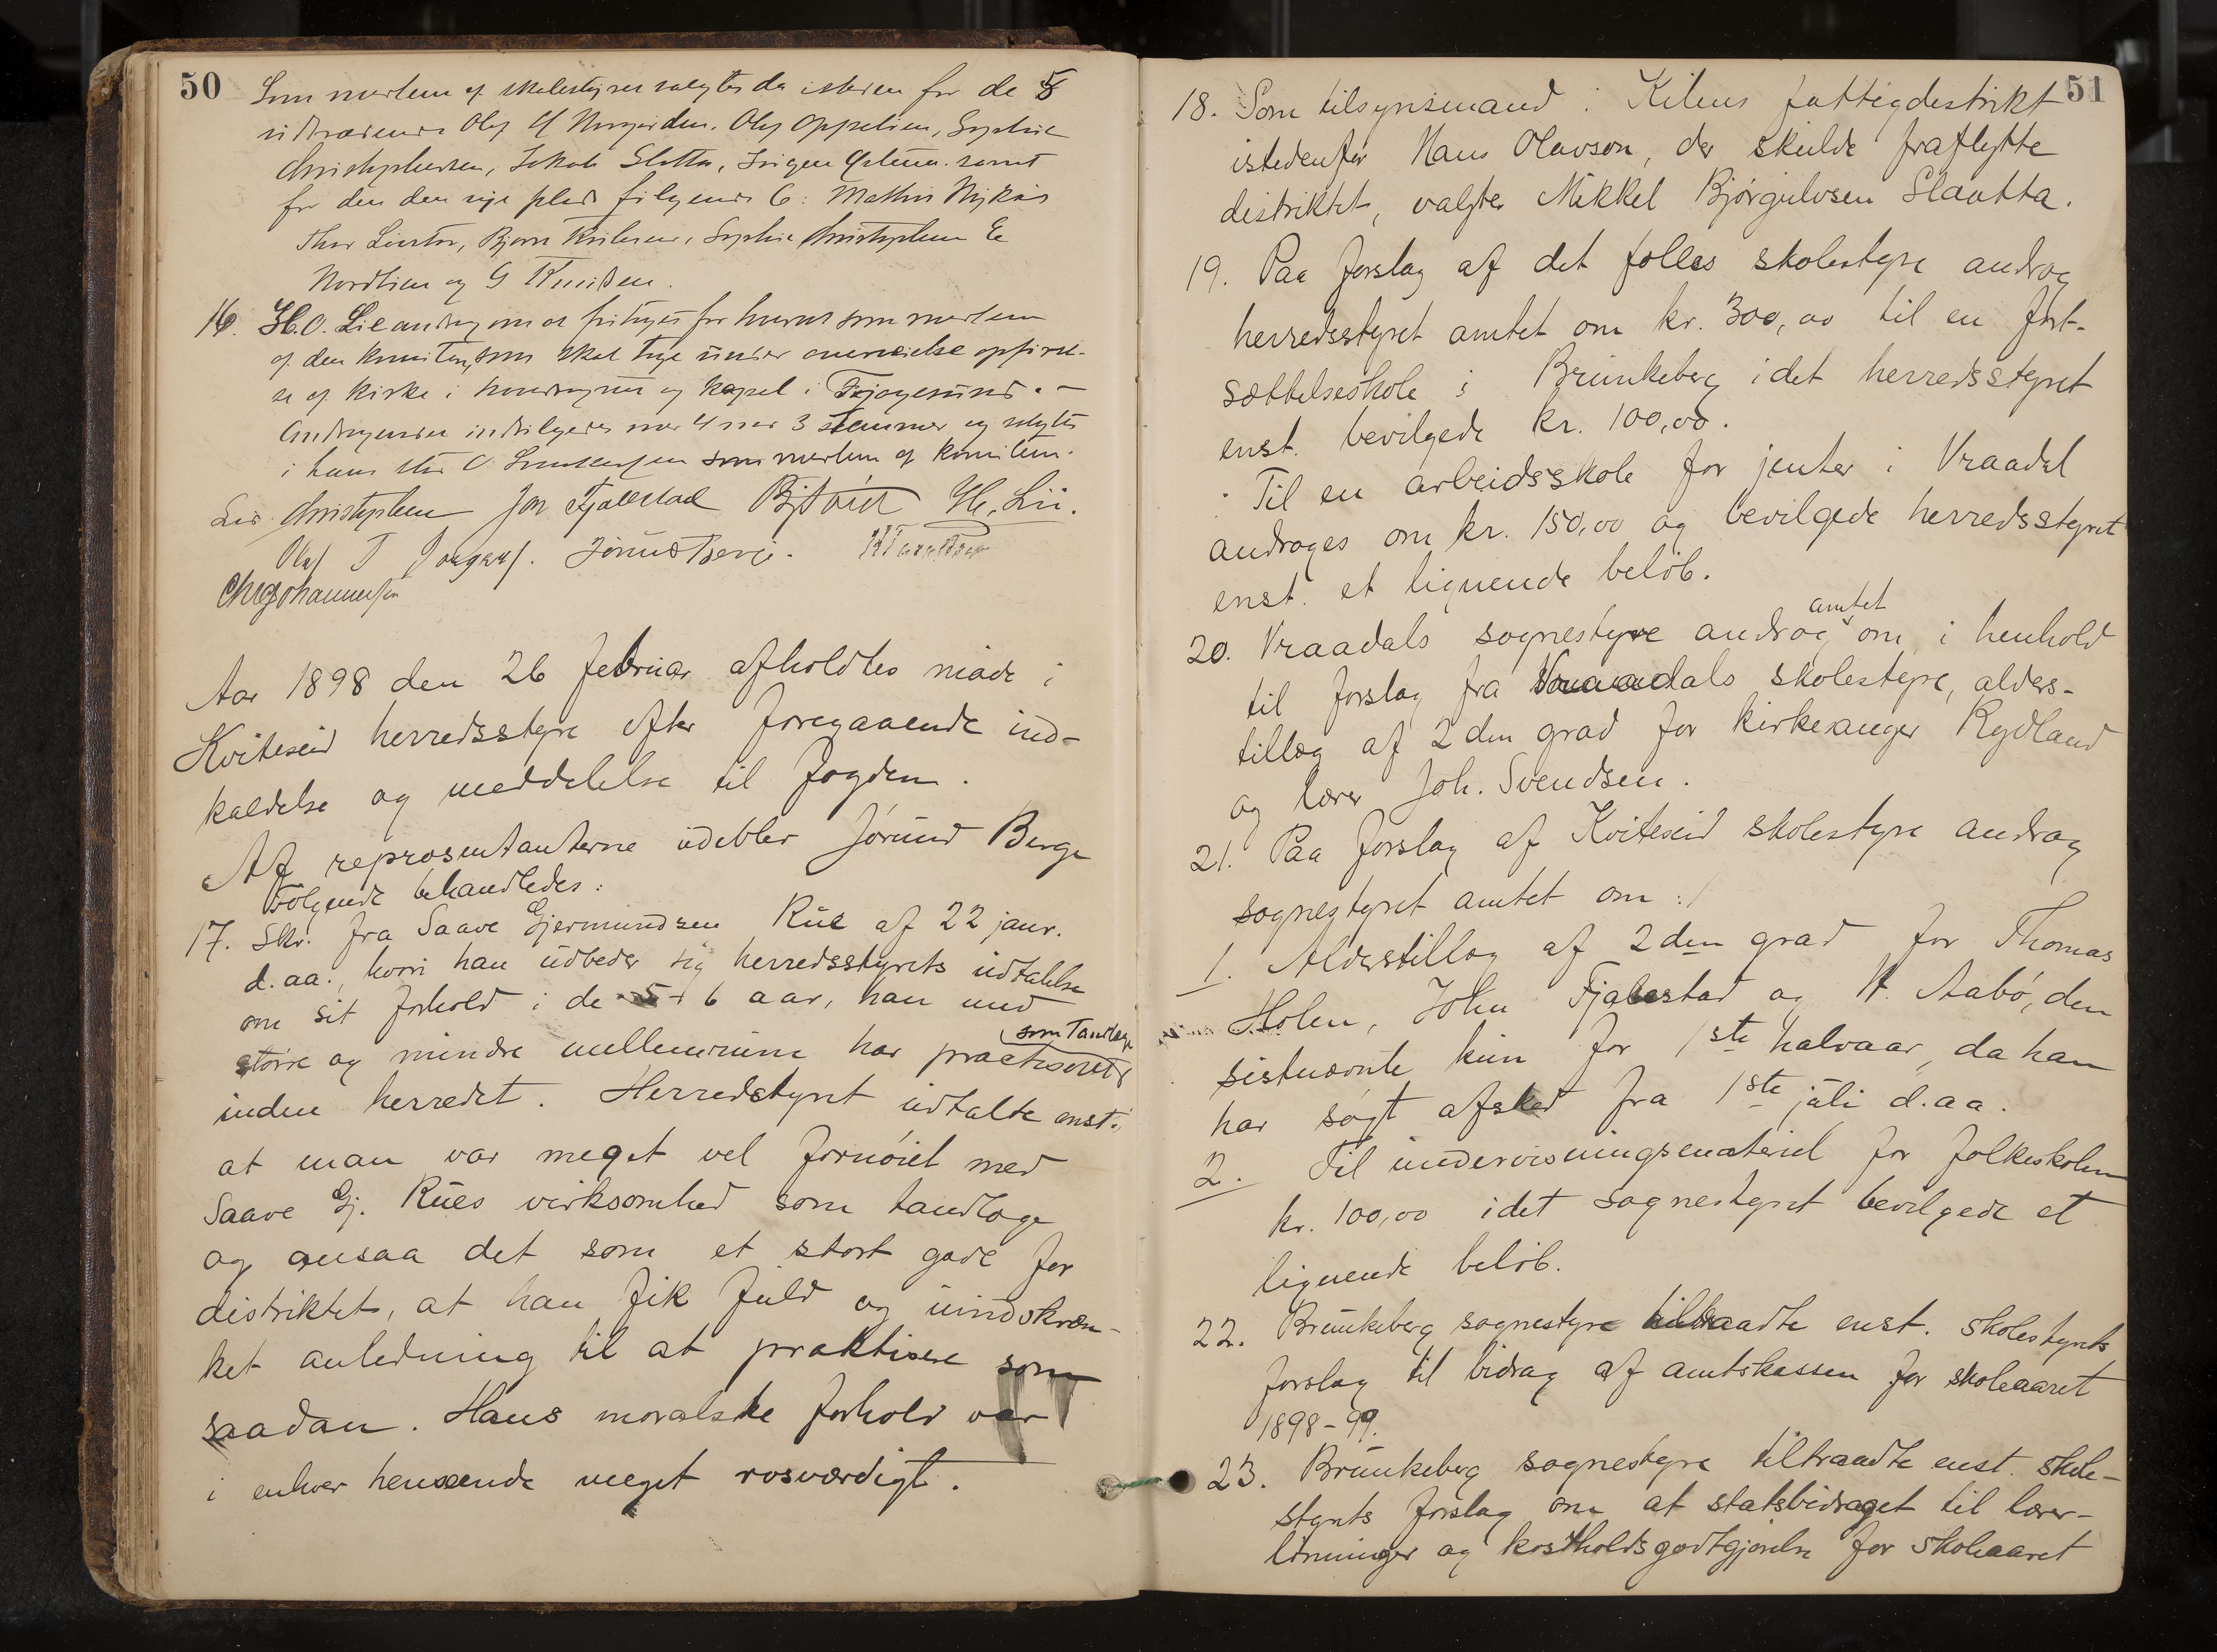 50
Som medlem af skolestyret valgtes da isteden for de 5
udtrædende Olaf Oppelien, Sophie
Christophersen, Jakob Slotta, samt
for den den nye plads følgende 6: Mathis Nykås
Thor Sophie Christophersen
Nordlien og G Knudsen.
16. H.O. Lie androg om at fritages for hvervet som medlem
af den komiten, som skal tage under overveielse opførel-
se af kirke i og kapel i Fjaagesund. -
Andragendet indvilgedes med 4 mod 3 stemmer og valgtes
i hans sted som medlem af komiteen.
Christophersen Jon Fjalestad H. Lii.
Olaf T Jørund Berge. H Taraldsen
Chr Johannessen
Aar 1898 den 26 februar afholdtes møde i
Kviteseid herredsstyre efter foregaaende ind-
kaldelse og meddelelse til fogden.
Af repræsentanterne udeblev Jørund Berge
Følgende behandledes:
17. Skr. fra Saave Gjermundsen Rue af 22 janr.
d.aa., hvori han udbeder sig herredsstyrets udtalelse
om sit forhold i de 5-6 aar, han med
som Tandlæge
større og mindre mellemrum har practiseret
inden herredet. Herredstyret udtalte enst.,
at man var meget vel fornøiet med
Saave Gj. Rues virksomhed som tandlæge
og ansaa det som et stort gode for
distriktet, at han fik fuld og uindskræn-
ket anledning til at praktisere som
saadan. Hans moralske forhold var
i enhver henseende meget rosværdigt.
51
18. Som tilsynsmand i Kilens fattigdistrikt
istedenfor Hans Olavson, der skulde fraflytte
distriktet, valgtes Mikkel Bjørgulvsen Slaatta.
19. Paa forslag af det fælles skolestyre androg
herredsstyret amtet om kr. 300,00 til en fort-
sættelseskole i Brunkeberg idet herredsstyret
enst. bevilgede kr. 100,00.
Til en arbeidsskole for jenter i Vraadal
androges om kr. 150,00 og bevilgede herredsstyret
enst. et lignende beløb.
amtet
20. Vraadals sognestyre androg om, i henhold
til forslag fra Vraadals skolestyre, alders-
tillæg af 2den grad for kirkesanger Rydland
og lærer Joh. Svendsen.
21. Paa forslag af Kviteseid skolestyre androg
sognestyret amtet om:
1. Alderstillæg af 2den grad for Thomas
Holen, John Fjalestad og H. Aabø, den
sistnævnte kun for 1ste halvaar, da han
har søgt afsked fra 1ste juli d.aa.
2. Til undervisningsmateriel for folkeskolen
kr. 100,00 idet sognestyret bevilgede et
lignende beløb.
22. Brunkeberg sognestyre tiltraadte enst. skolestyrets
forslag til bidrag af amtskassen for skoleaaret
1898-99.
23. Brunkeberg sognestyre tiltraadte enst. skole-
styrets forslag om at statsbidraget til lærer-
lønninger og kostholdsgodtgjørelse for skoleaaret